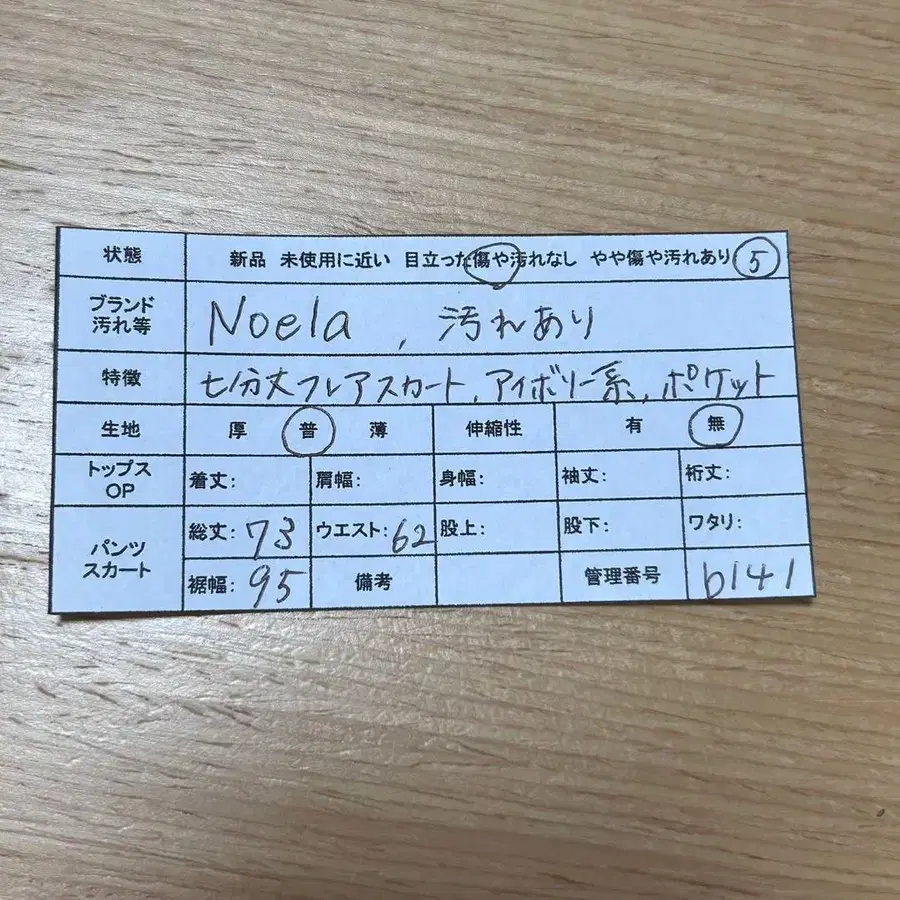 状態 新品 未使用に近い 目立った傷や汚れなし やや傷や汚れあり 5
ブランド 汚れ等 Noela、汚れあり
特徴 七分丈フレアスカート、アイボリー系、ポケット
生地 厚 普 薄 伸縮性 有 無
トップス OP 着丈: 肩幅: 身幅: 袖丈: 裄丈:
パンツ スカート 総丈: 73 ウエスト: 62 股上: 股下: ワタリ:
裾幅: 95 備考 管理番号 b141